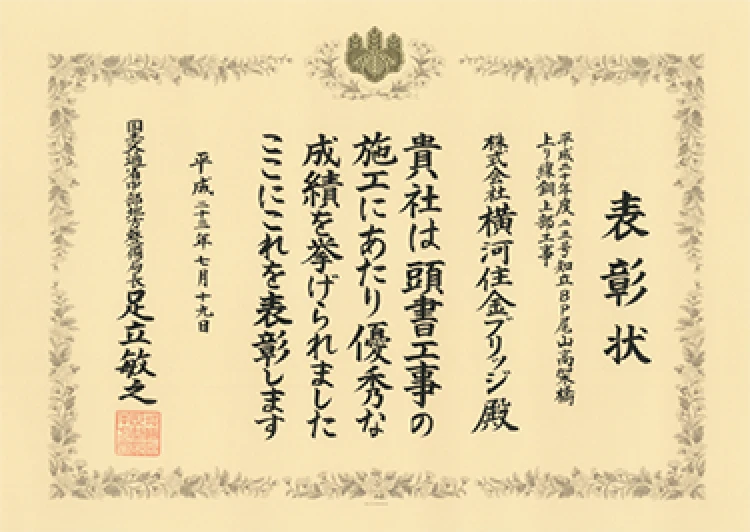 表彰状
平成二十年度二三号知立BP尾山高架橋
上り線鋼上部工事
株式会社横河住金ブリッジ殿
貴社は頭書工事の
施工にあたり優秀な
成績を挙げられました
ここにこれを表彰します
平成二十三年七月十九日
国土交通省中部地方整備局長足立敏之